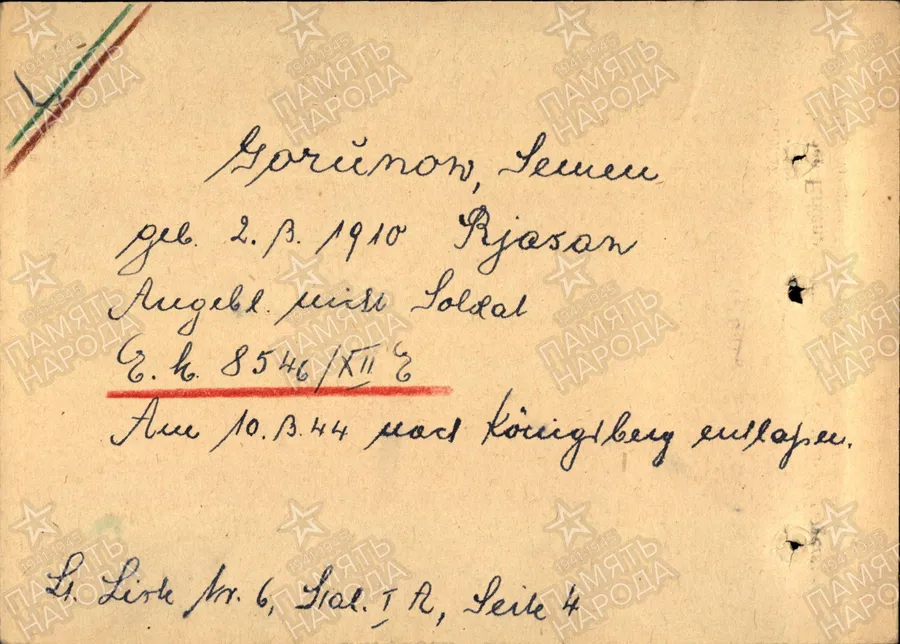 Gorŭnow, Semen
geb. 2.3.1910 Rjasan
Angebl. nicht Soldat
E.k. 8546/XII E
Am 10.3.44 nach Königsberg entlaßen.
Lt. Liste Nr. 6, Stal. I A, Seite 4
1941-1945
ПАМЯТЬ
НАРОДА